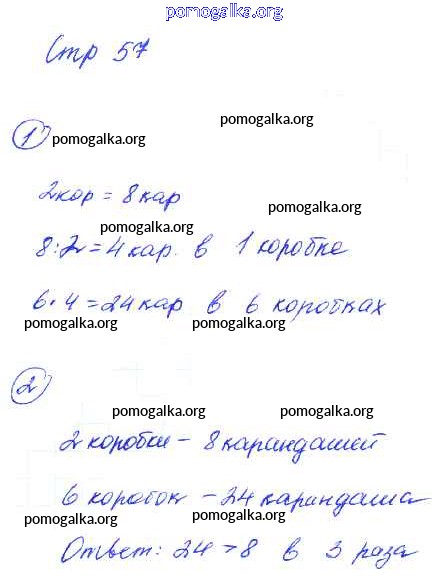 pomogalka.org
Стр 57
pomogalka.org
1 pomogalka.org
2 кор = 8 кар
pomogalka.org
pomogalka.org
8 : 2 = 4 кар. в 1 коробке
6 · 4 = 24 кар в 6 коробках
pomogalka.org pomogalka.org
2
pomogalka.org pomogalka.org
2 коробки – 8 карандашей
6 коробок – 24 карандаша
pomogalka.org pomogalka.org
Ответ: 24 > 8 в 3 раза